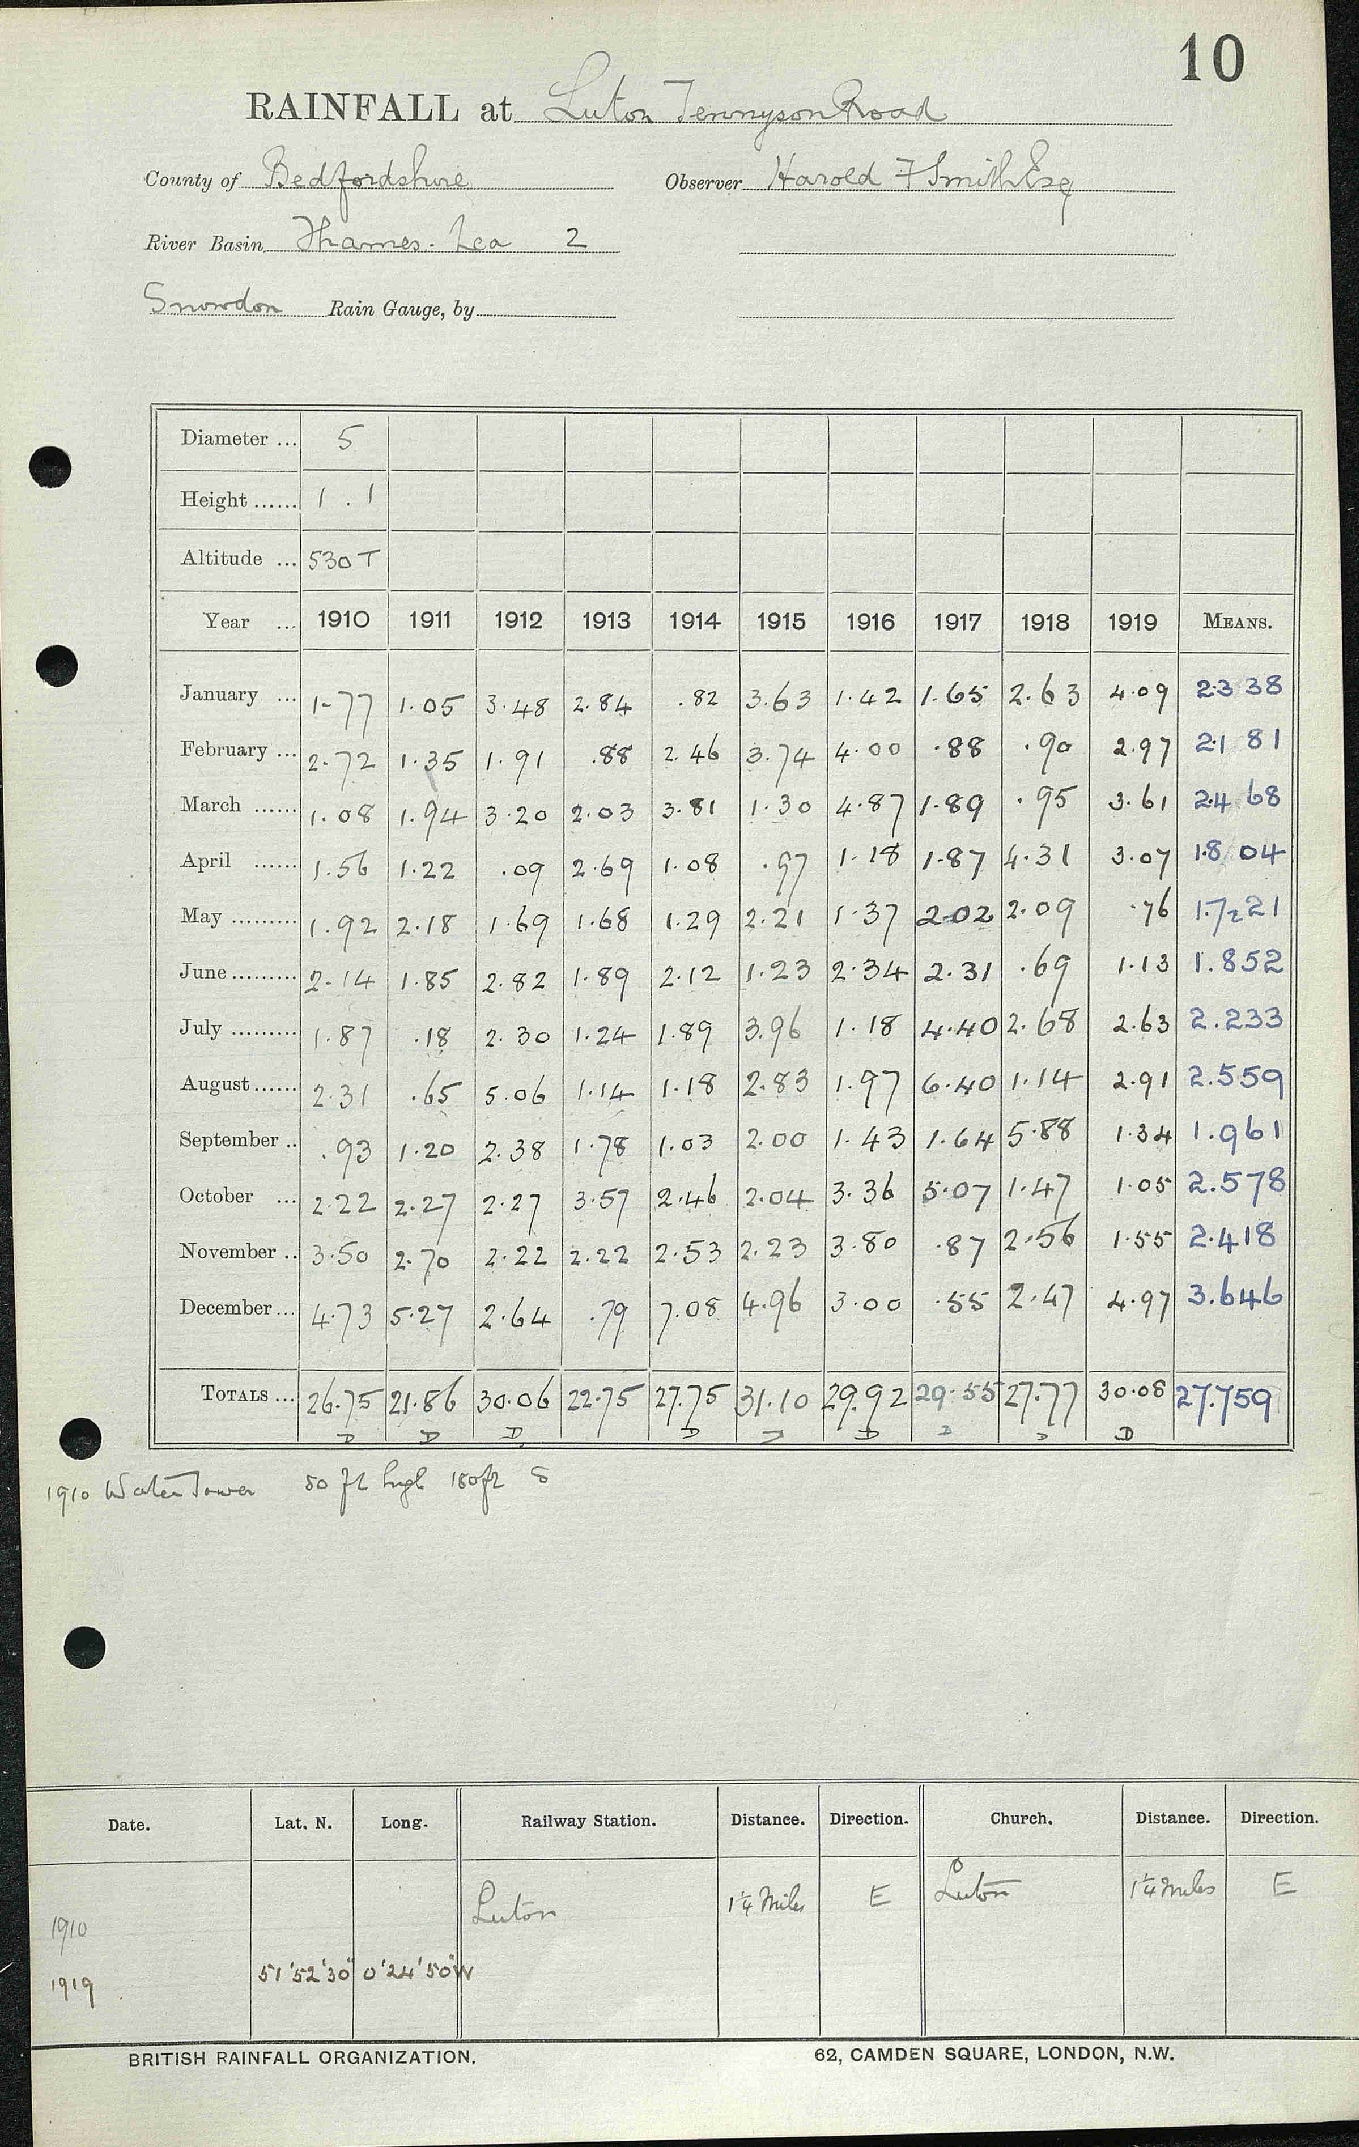 10
RAINFALL at Luton Tennyson Road
County of Bedfordshire Observer Harold F Smith Esq
River Basin Thames. Lea 2
Snowdon Rain Gauge, by
Diameter ... 5
Height ...... 1 . 1
Altitude ... 530 T
Year ... 1910 1911 1912 1913 1914 1915 1916 1917 1918 1919 MEANS.
January ... 1.77 1.05 3.48 2.84 .82 3.63 1.42 1.65 2.63 4.09 2.338
February ... 2.72 1.35 1.91 .88 2.46 3.74 4.00 .88 .90 2.97 2.181
March ...... 1.08 1.94 3.20 2.03 3.81 1.30 4.87 1.89 .95 3.61 2.468
April ...... 1.56 1.22 .09 2.69 1.08 .97 1.18 1.87 4.31 3.07 1.804
May ......... 1.92 2.18 1.69 1.68 1.29 2.21 1.37 2.02 2.09 .76 1.721
June ......... 2.14 1.85 2.82 1.89 2.12 1.23 2.34 2.31 .69 1.13 1.852
July ......... 1.87 .18 2.30 1.24 1.89 3.96 1.18 4.40 2.68 2.63 2.233
August ...... 2.31 .65 5.06 1.14 1.18 2.83 1.97 6.40 1.14 2.91 2.559
September .. .93 1.20 2.38 1.78 1.03 2.00 1.43 1.64 5.88 1.34 1.961
October ... 2.22 2.27 2.27 3.57 2.46 2.04 3.36 5.07 1.47 1.05 2.578
November .. 3.50 2.70 2.22 2.22 2.53 2.23 3.80 .87 2.56 1.55 2.418
December ... 4.73 5.27 2.64 .79 7.08 4.96 3.00 .55 2.47 4.97 3.646
TOTALS ... 26.75 21.86 30.06 22.75 27.75 31.10 29.92 29.55 27.77 30.08 27.759
D D D D D D D D D
1910 Water Tower 50 ft high 150 ft S
Date. Lat. N. Long. Railway Station. Distance. Direction. Church. Distance. Direction.
1910 Luton 1¼ Miles E Luton 1¼ Miles E
1919 51°52'30" 0°24'50"W
BRITISH RAINFALL ORGANIZATION. 62, CAMDEN SQUARE, LONDON, N.W.